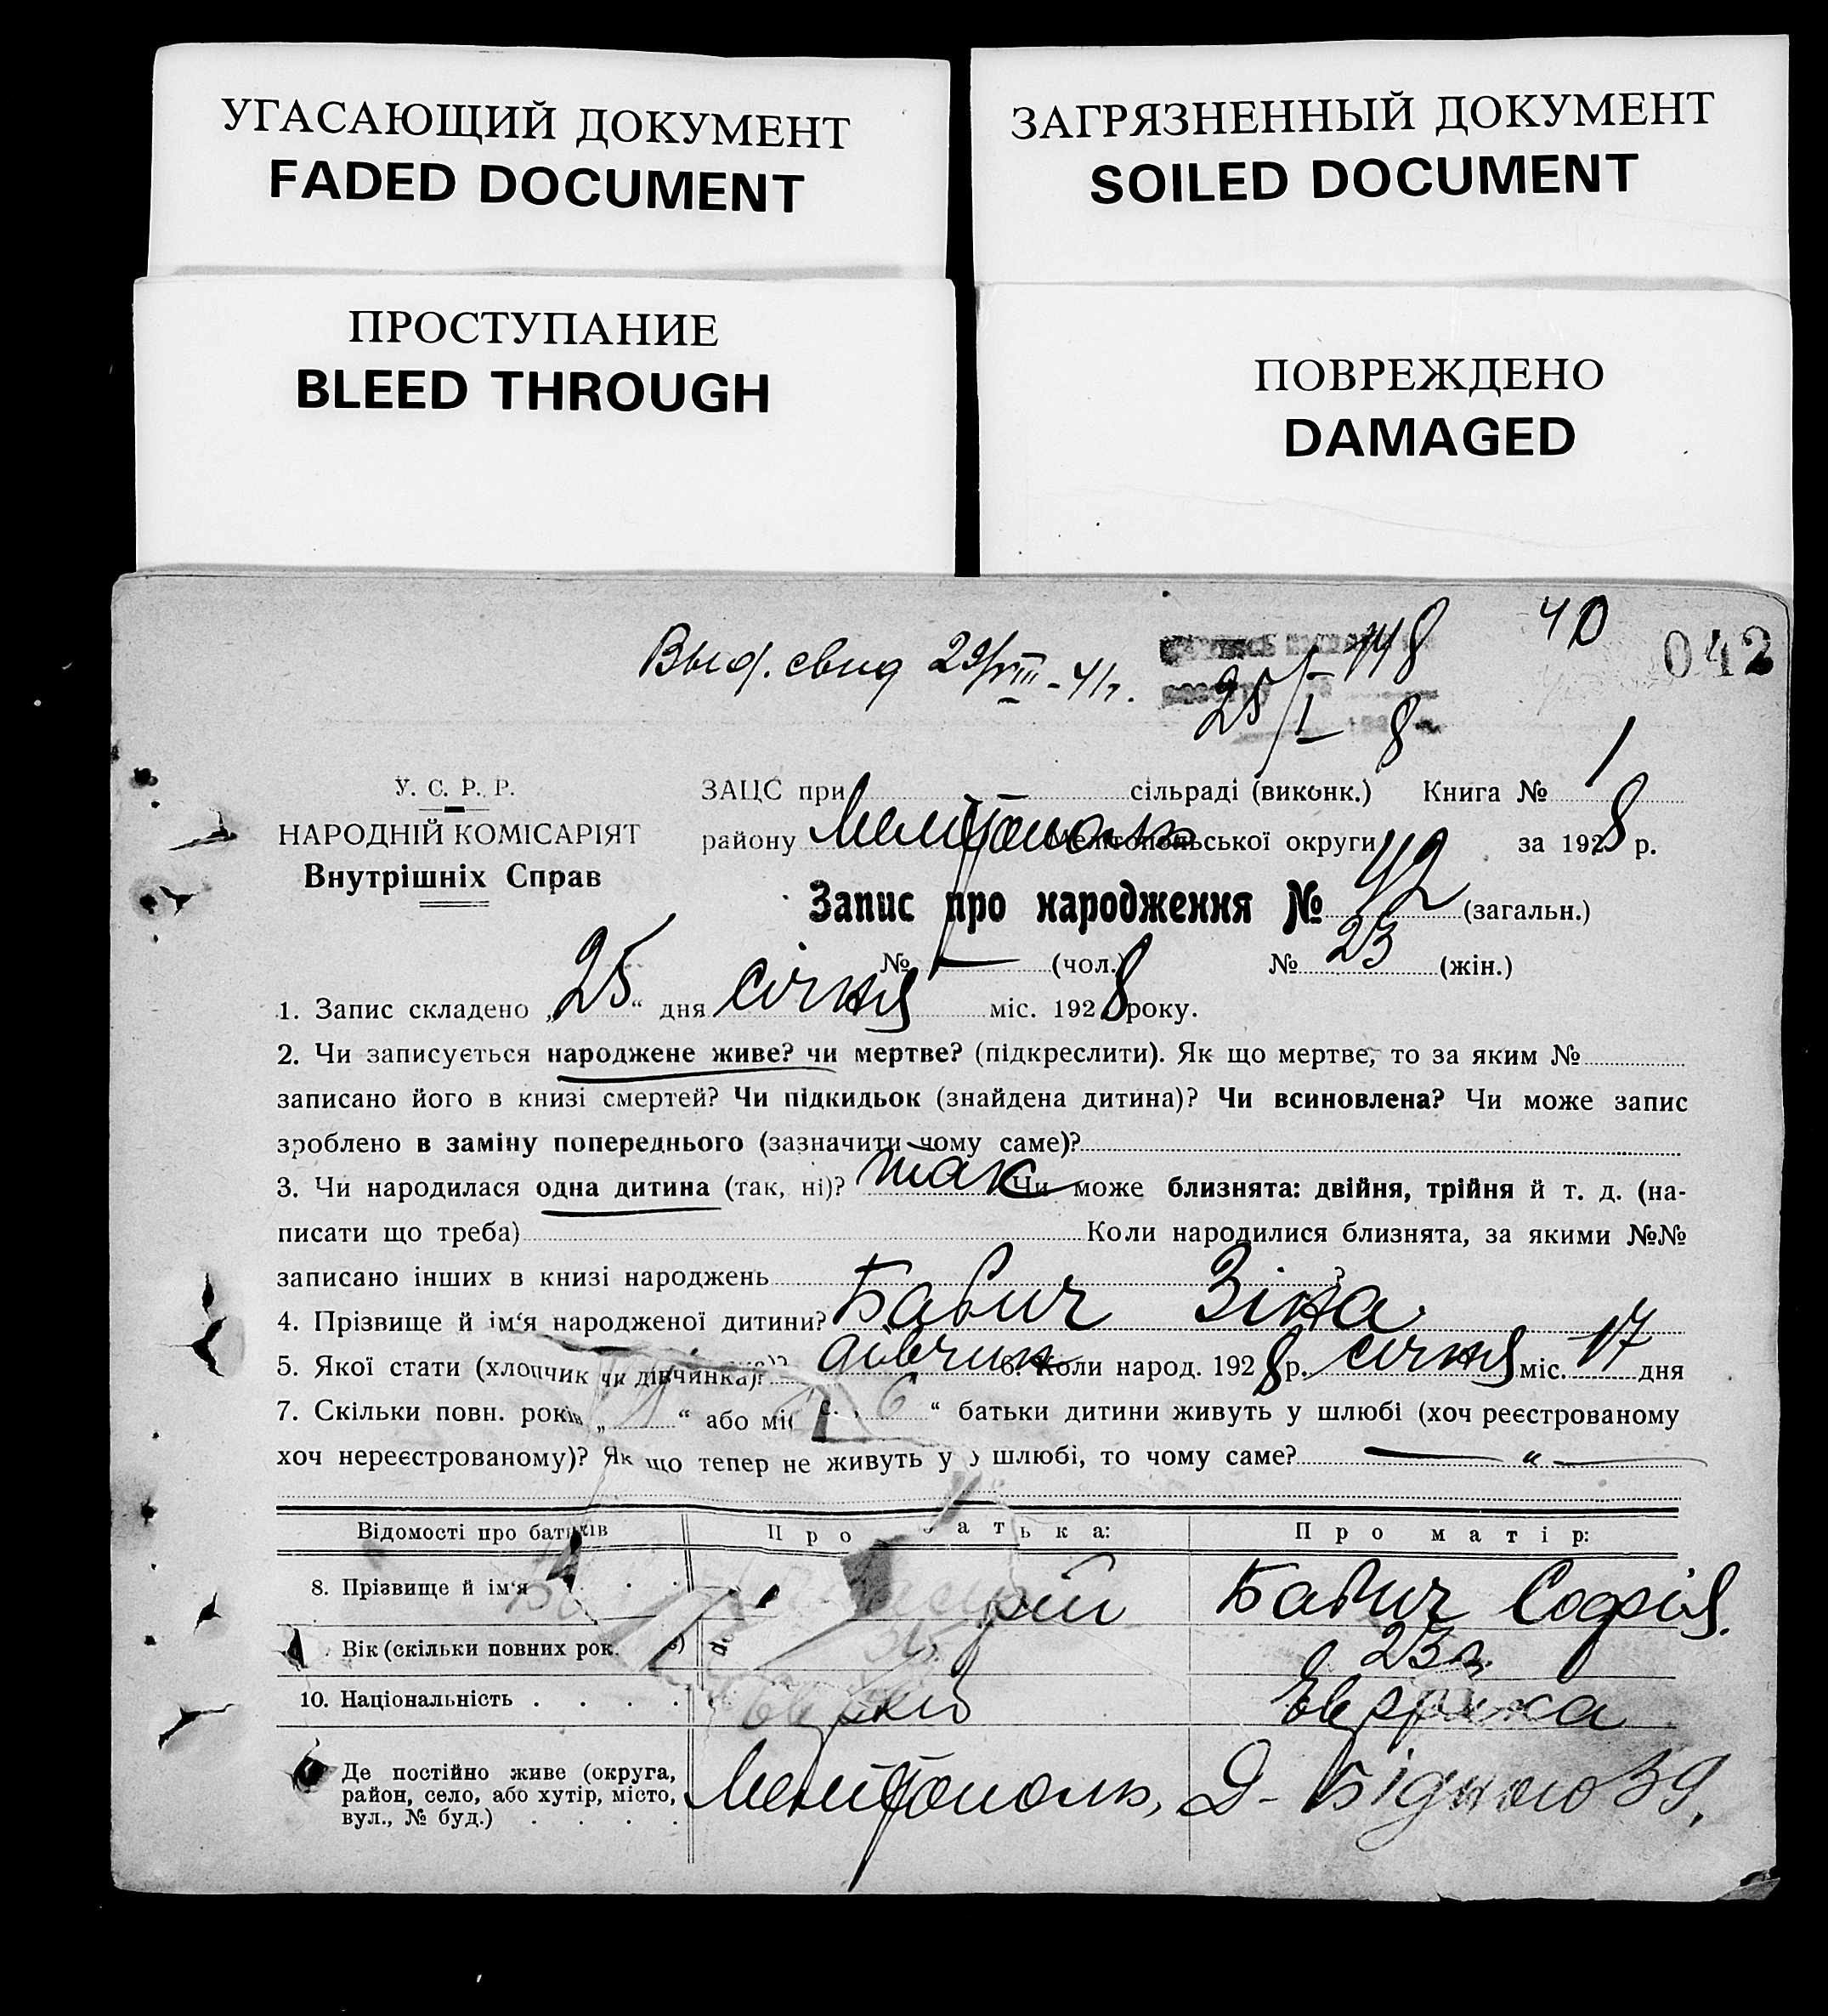 УГАСАЮЩИЙ ДОКУМЕНТ
FADED DOCUMENT
ЗАГРЯЗНЕННЫЙ ДОКУМЕНТ
SOILED DOCUMENT
ПРОСТУПАНИЕ
BLEED THROUGH
ПОВРЕЖДЕНО
DAMAGED
40
042
Выд. свид 29/VIII-41г.
25/I 8
У. С. Р. Р.
НАРОДНІЙ КОМІСАРІЯТ
Внутрішніх Справ
ЗАЦС при сільраді (виконк.) Книга № 1
району Мелітополь Мелітопольської округи за 1928 р.
Запис про народження № 42 (загальн.)
№ (чол.) № 23 (жін.)
1. Запис складено „25“ дня січня міс. 1928 року.
2. Чи записується народжене живе? чи мертве? (підкреслити). Як що мертве, то за яким №
записано його в книзі смертей? Чи підкидьок (знайдена дитина)? Чи всиновлена? Чи може запис
зроблено в заміну попереднього (зазначити чому саме)?
3. Чи народилася одна дитина (так, ні)? так Чи може близнята: двійня, трійня й т. д. (на-
писати що треба) Коли народилися близнята, за якими №№
записано інших в книзі народжень ?
4. Прізвище й ім‘я народженої дитини? Бабич Зіна.
5. Якої стати (хлопчик чи дівчинка)? дівчин 6. Коли народ. 1928 р. січня міс. 17 дня
7. Скільки повн. років „ “ або міс. 6 “ батьки дитини живуть у шлюбі (хоч реєстрованому
хоч нереєстрованому)? Як що тепер не живуть у шлюбі, то чому саме? — “ —
Відомості про батьків Про батька: Про матір:
8. Прізвище й ім‘я Бабич Софія.
Вік (скільки повних рок. 23 р.
10. Національність Єврейка
Де постійно живе (округа,
район, село, або хутір, місто,
вул., № буд.)
Мелітополь, Д-Бідного 39.